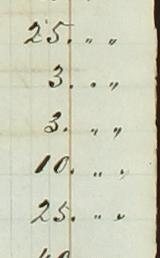 25. " "
3. " "
3. " "
10. " "
25. " "